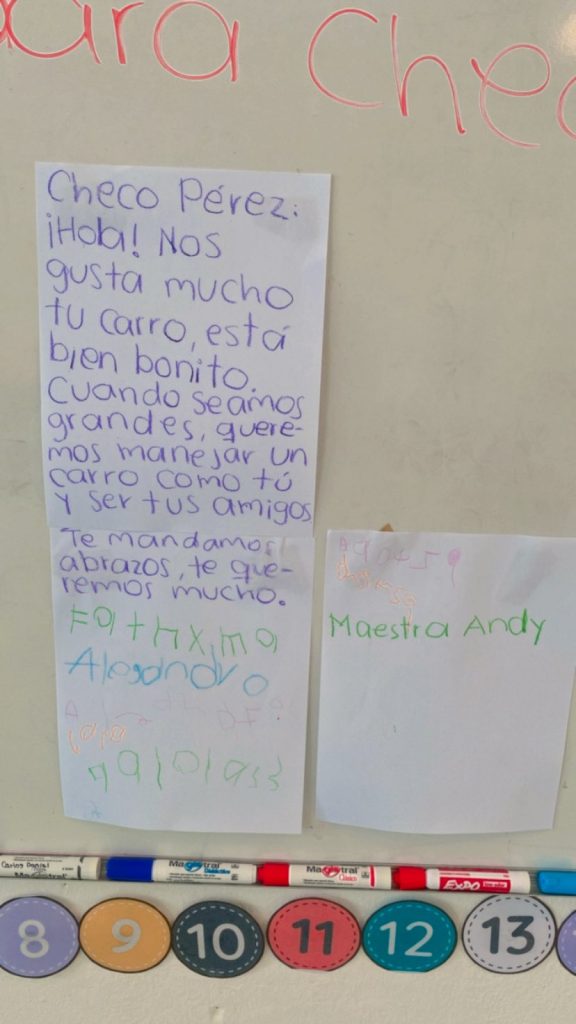 para Checo
Checo Pérez:
¡Hola! Nos
gusta mucho
tu carro, está
bien bonito.
Cuando seamos
grandes, quere-
mos manejar un
carro como tú
y ser tus amigos
Te mandamos
abrazos, te que-
remos mucho.
Alejandro
Maestra Andy
Carlos Daniel
Magistral
Magistral
Magistral
Clásico
EXPO
8 9 10 11 12 13